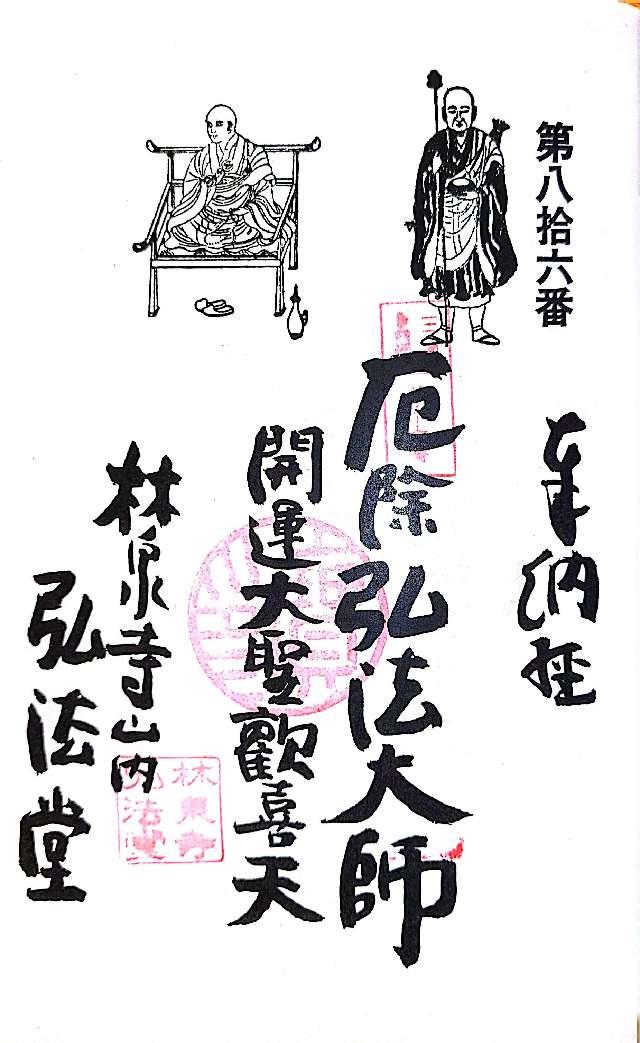 第八拾六番
奉納経
厄除弘法大師
開運大聖歓喜天
林泉寺山内
弘法堂
林泉寺
弘法堂